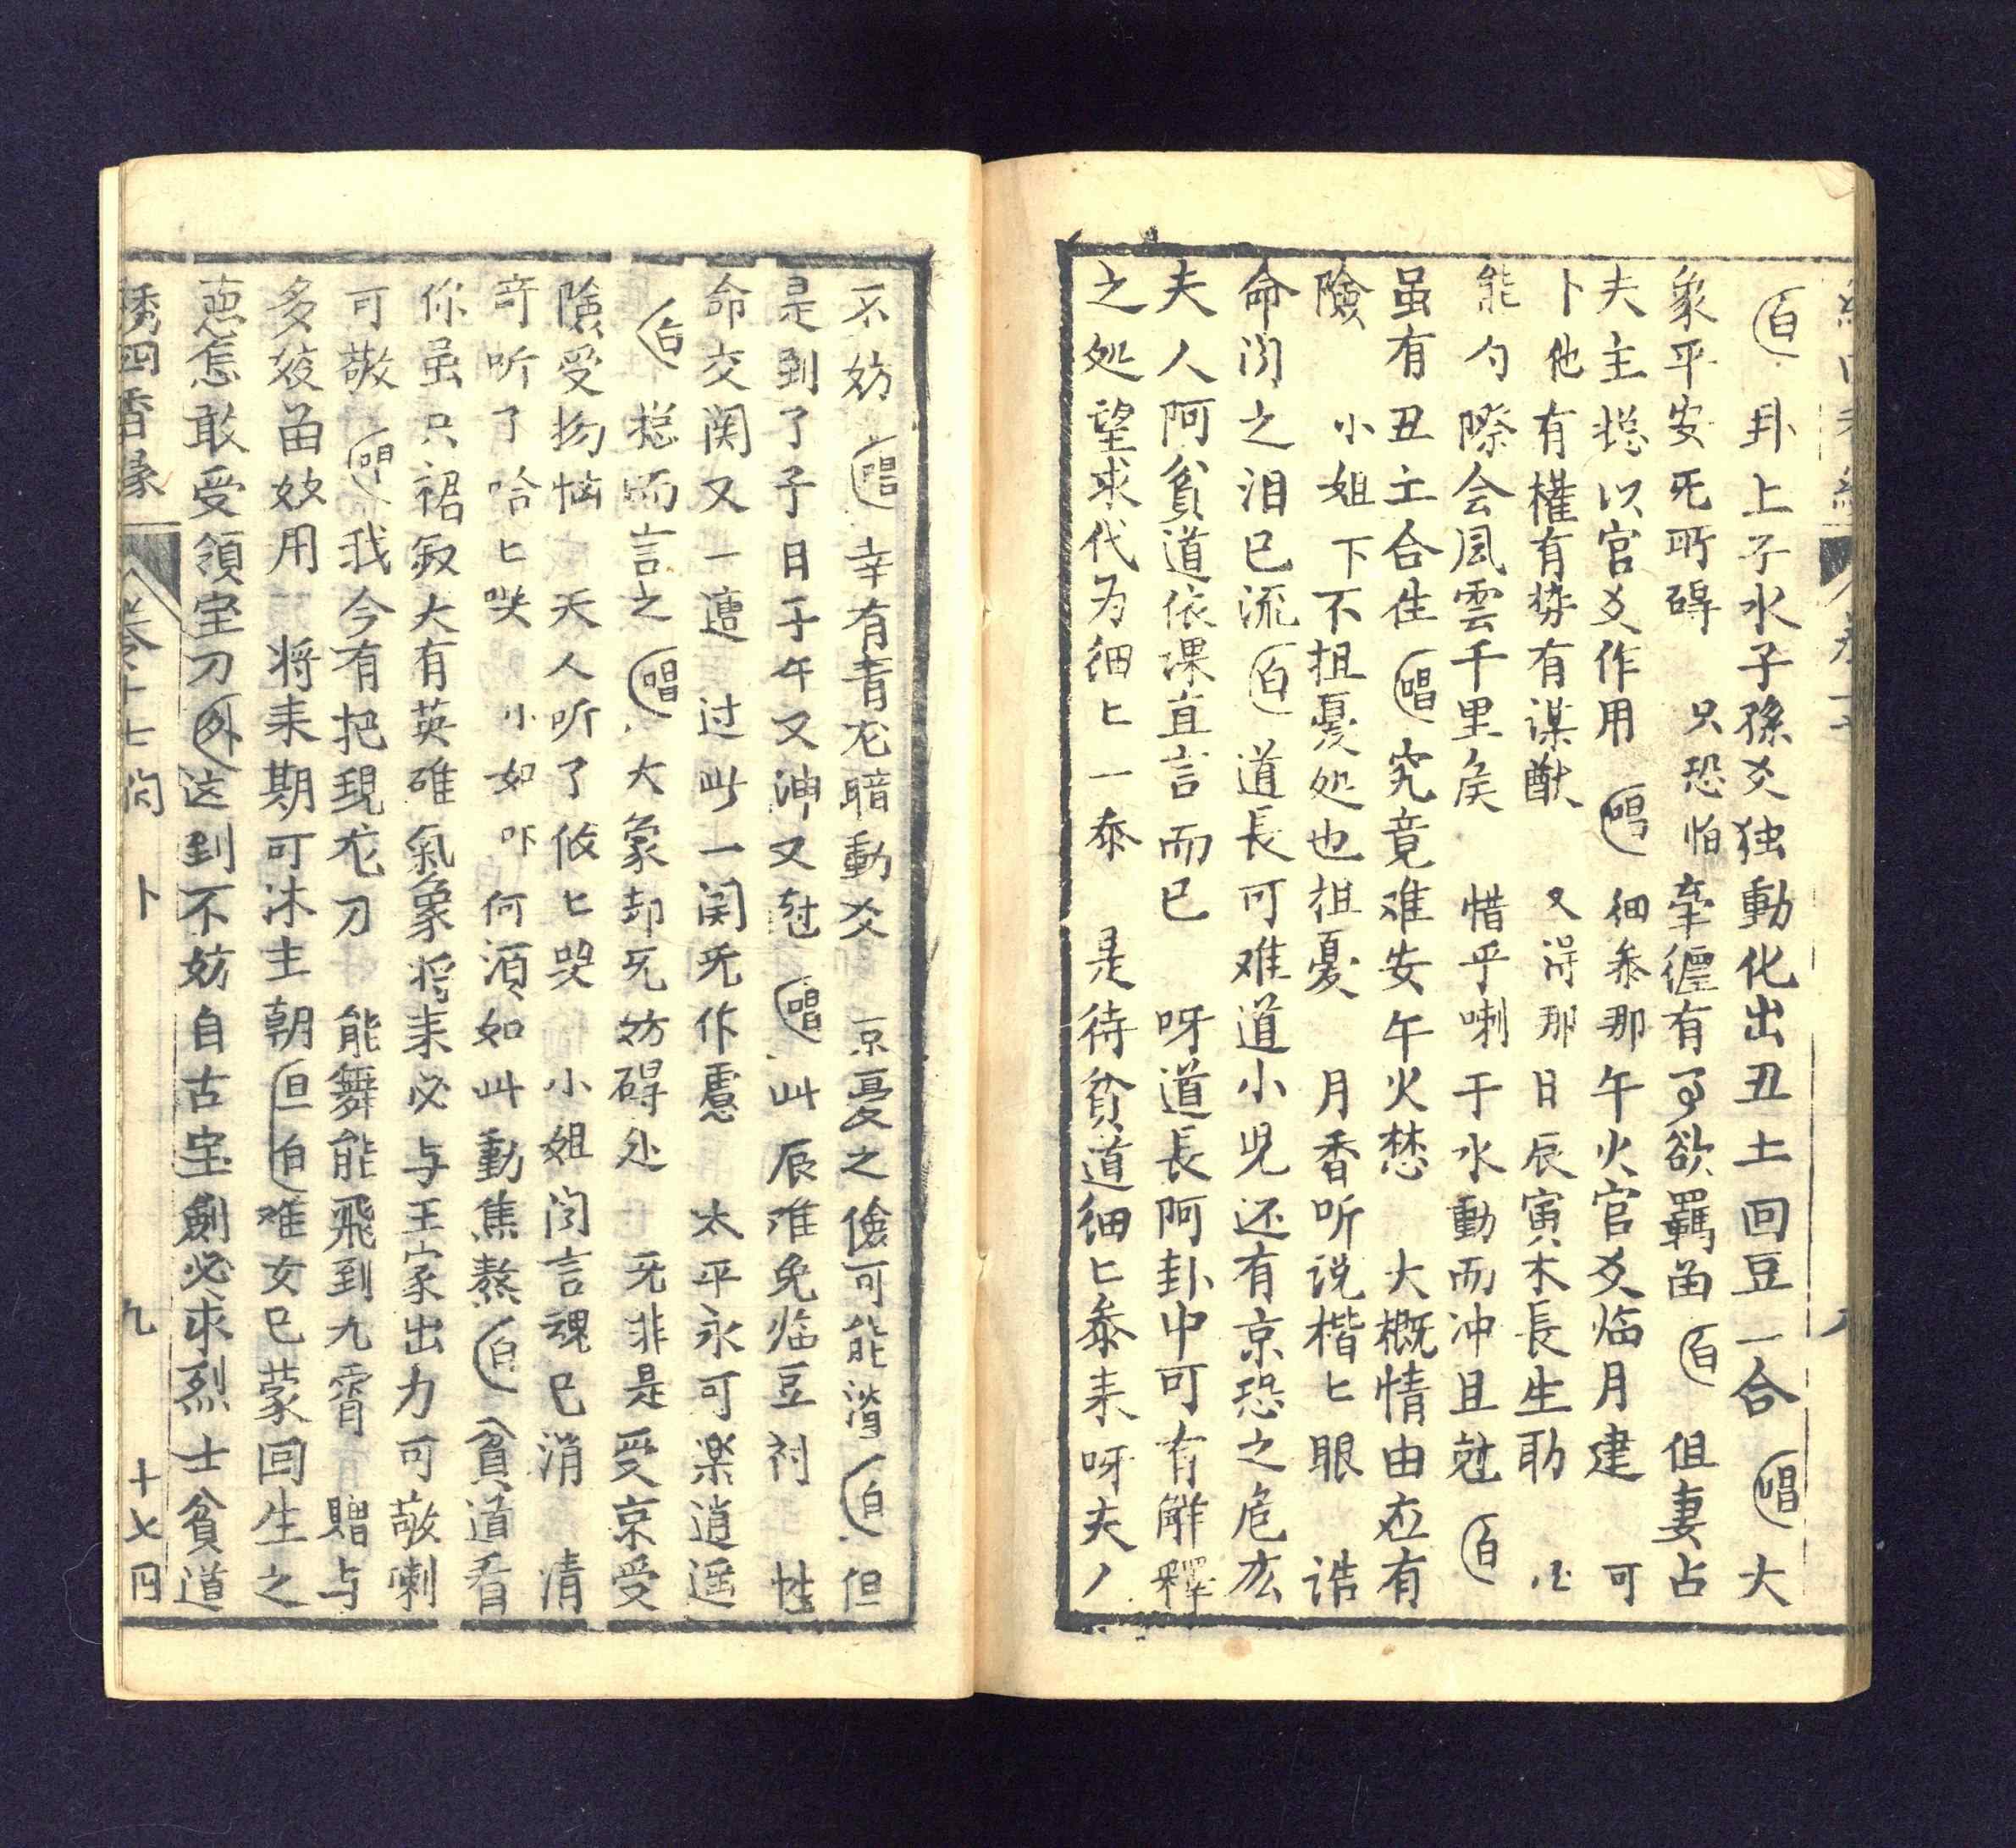 白 卦上子水子孫爻独動化出丑土回豆一合 唱 大
象平安旡所碍 只恐怕牽纒有了欲羈畄 白 但妻占
夫主捴以官爻作用 唱 细叅那午火官爻临月建 可
卜他有權有势有谋猷 又淂那日辰寅木長生助
能勾際会風雲千里矦 惜乎喇子水動而冲且尅 白
虽有丑土合住 唱 究竟难安午火愁 大概情由应有
險 小姐下不担憂処也担憂 月香听说楷匕眼 诰
命闻之泪已流 白 道長可难道小児还有京恐之危厷
夫人阿贫道依课直言而已 呀道長阿卦中可有觧釋
之处望求代为细匕一叅 是待贫道细匕叅来呀夫人
不妨 唱 幸有青尨暗動爻 京憂之傄可能消 白 但
是到了子日子午又冲又尅 唱 此辰难免临豆衬 性
命交関又一遭 过此一関旡作慿 太平永可楽逍遥
白 捴而言之 唱 大象却旡妨碍处 旡非是受京受
險受扬恼 夫人听了攸匕哭 小姐闻言魂已消 清
竒听了哈匕哄 小如吥何湏如此動焦熬 白 贫道看
你虽只裙叙大有英雄氣象将来必与王家出力可敬喇
可敬 唱 我今有把現尨刀 能舞能飛到九霄 贈与
多姣畄妙用 将来期可沐主朝 旦白 难女已蒙回生之
恵怎敢受領宝刀 外 这到不妨自古宝劍必求烈士贫道
綉四香縁 卷十七 闵 卜 九 十七回